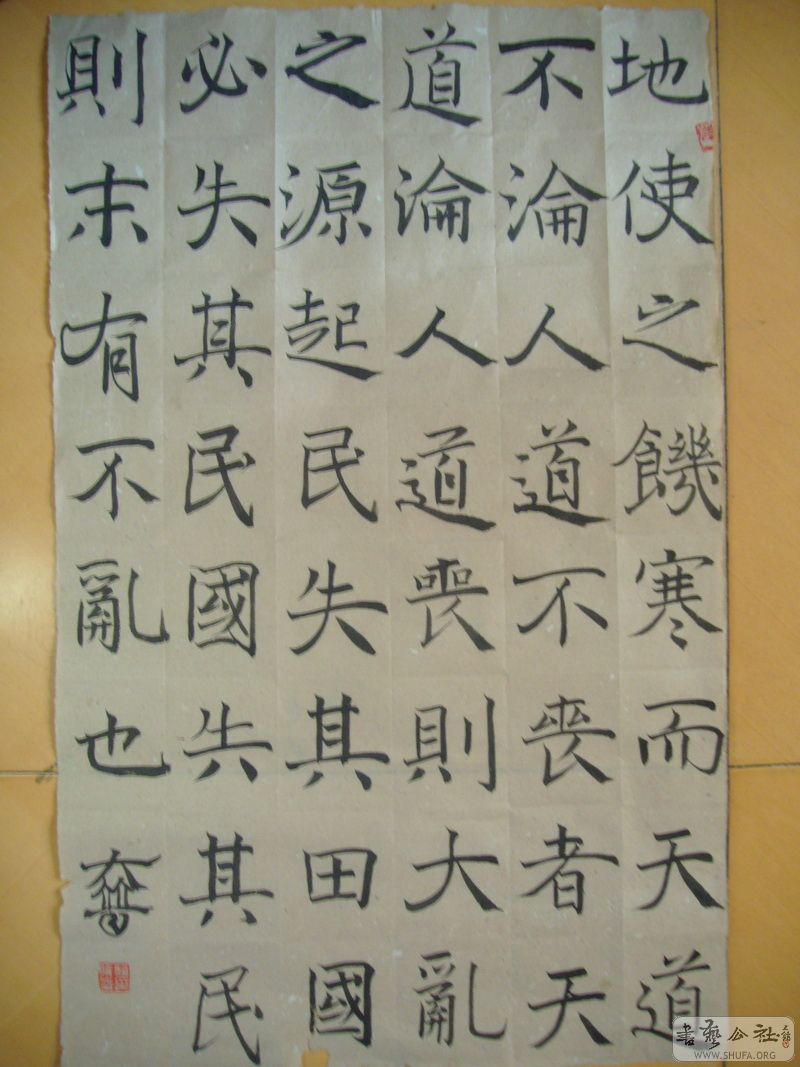 地使之饑寒而天道
不淪人道不喪者天
道淪人道喪則大亂
之源起民失其田國
必失其民國失其民
則末有不亂也
書藝公社
WWW.SHUFA.ORG